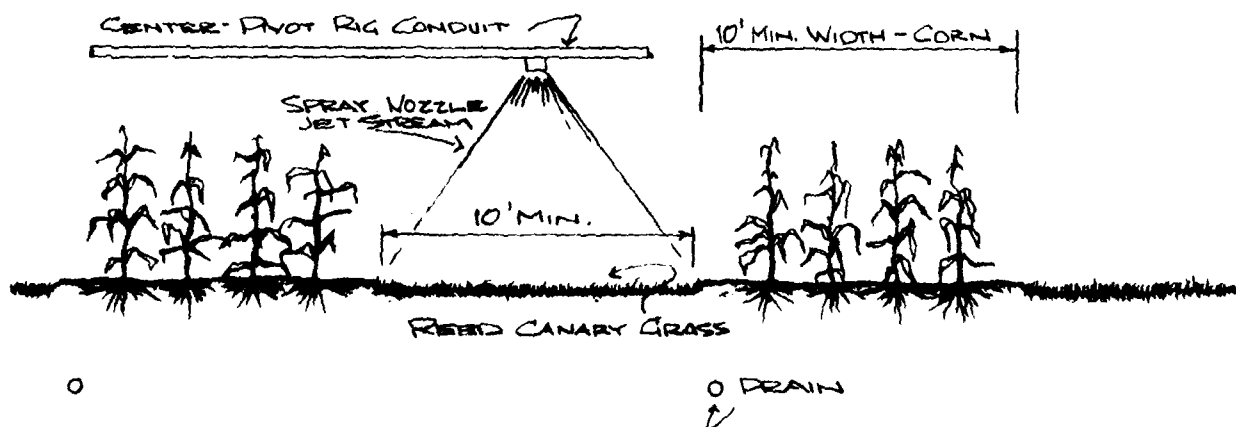 CENTER-PIVOT RIG CONDUIT
10' MIN. WIDTH - CORN
SPRAY NOZZLE
JET STREAM
10' MIN.
REED CANARY GRASS
DRAIN